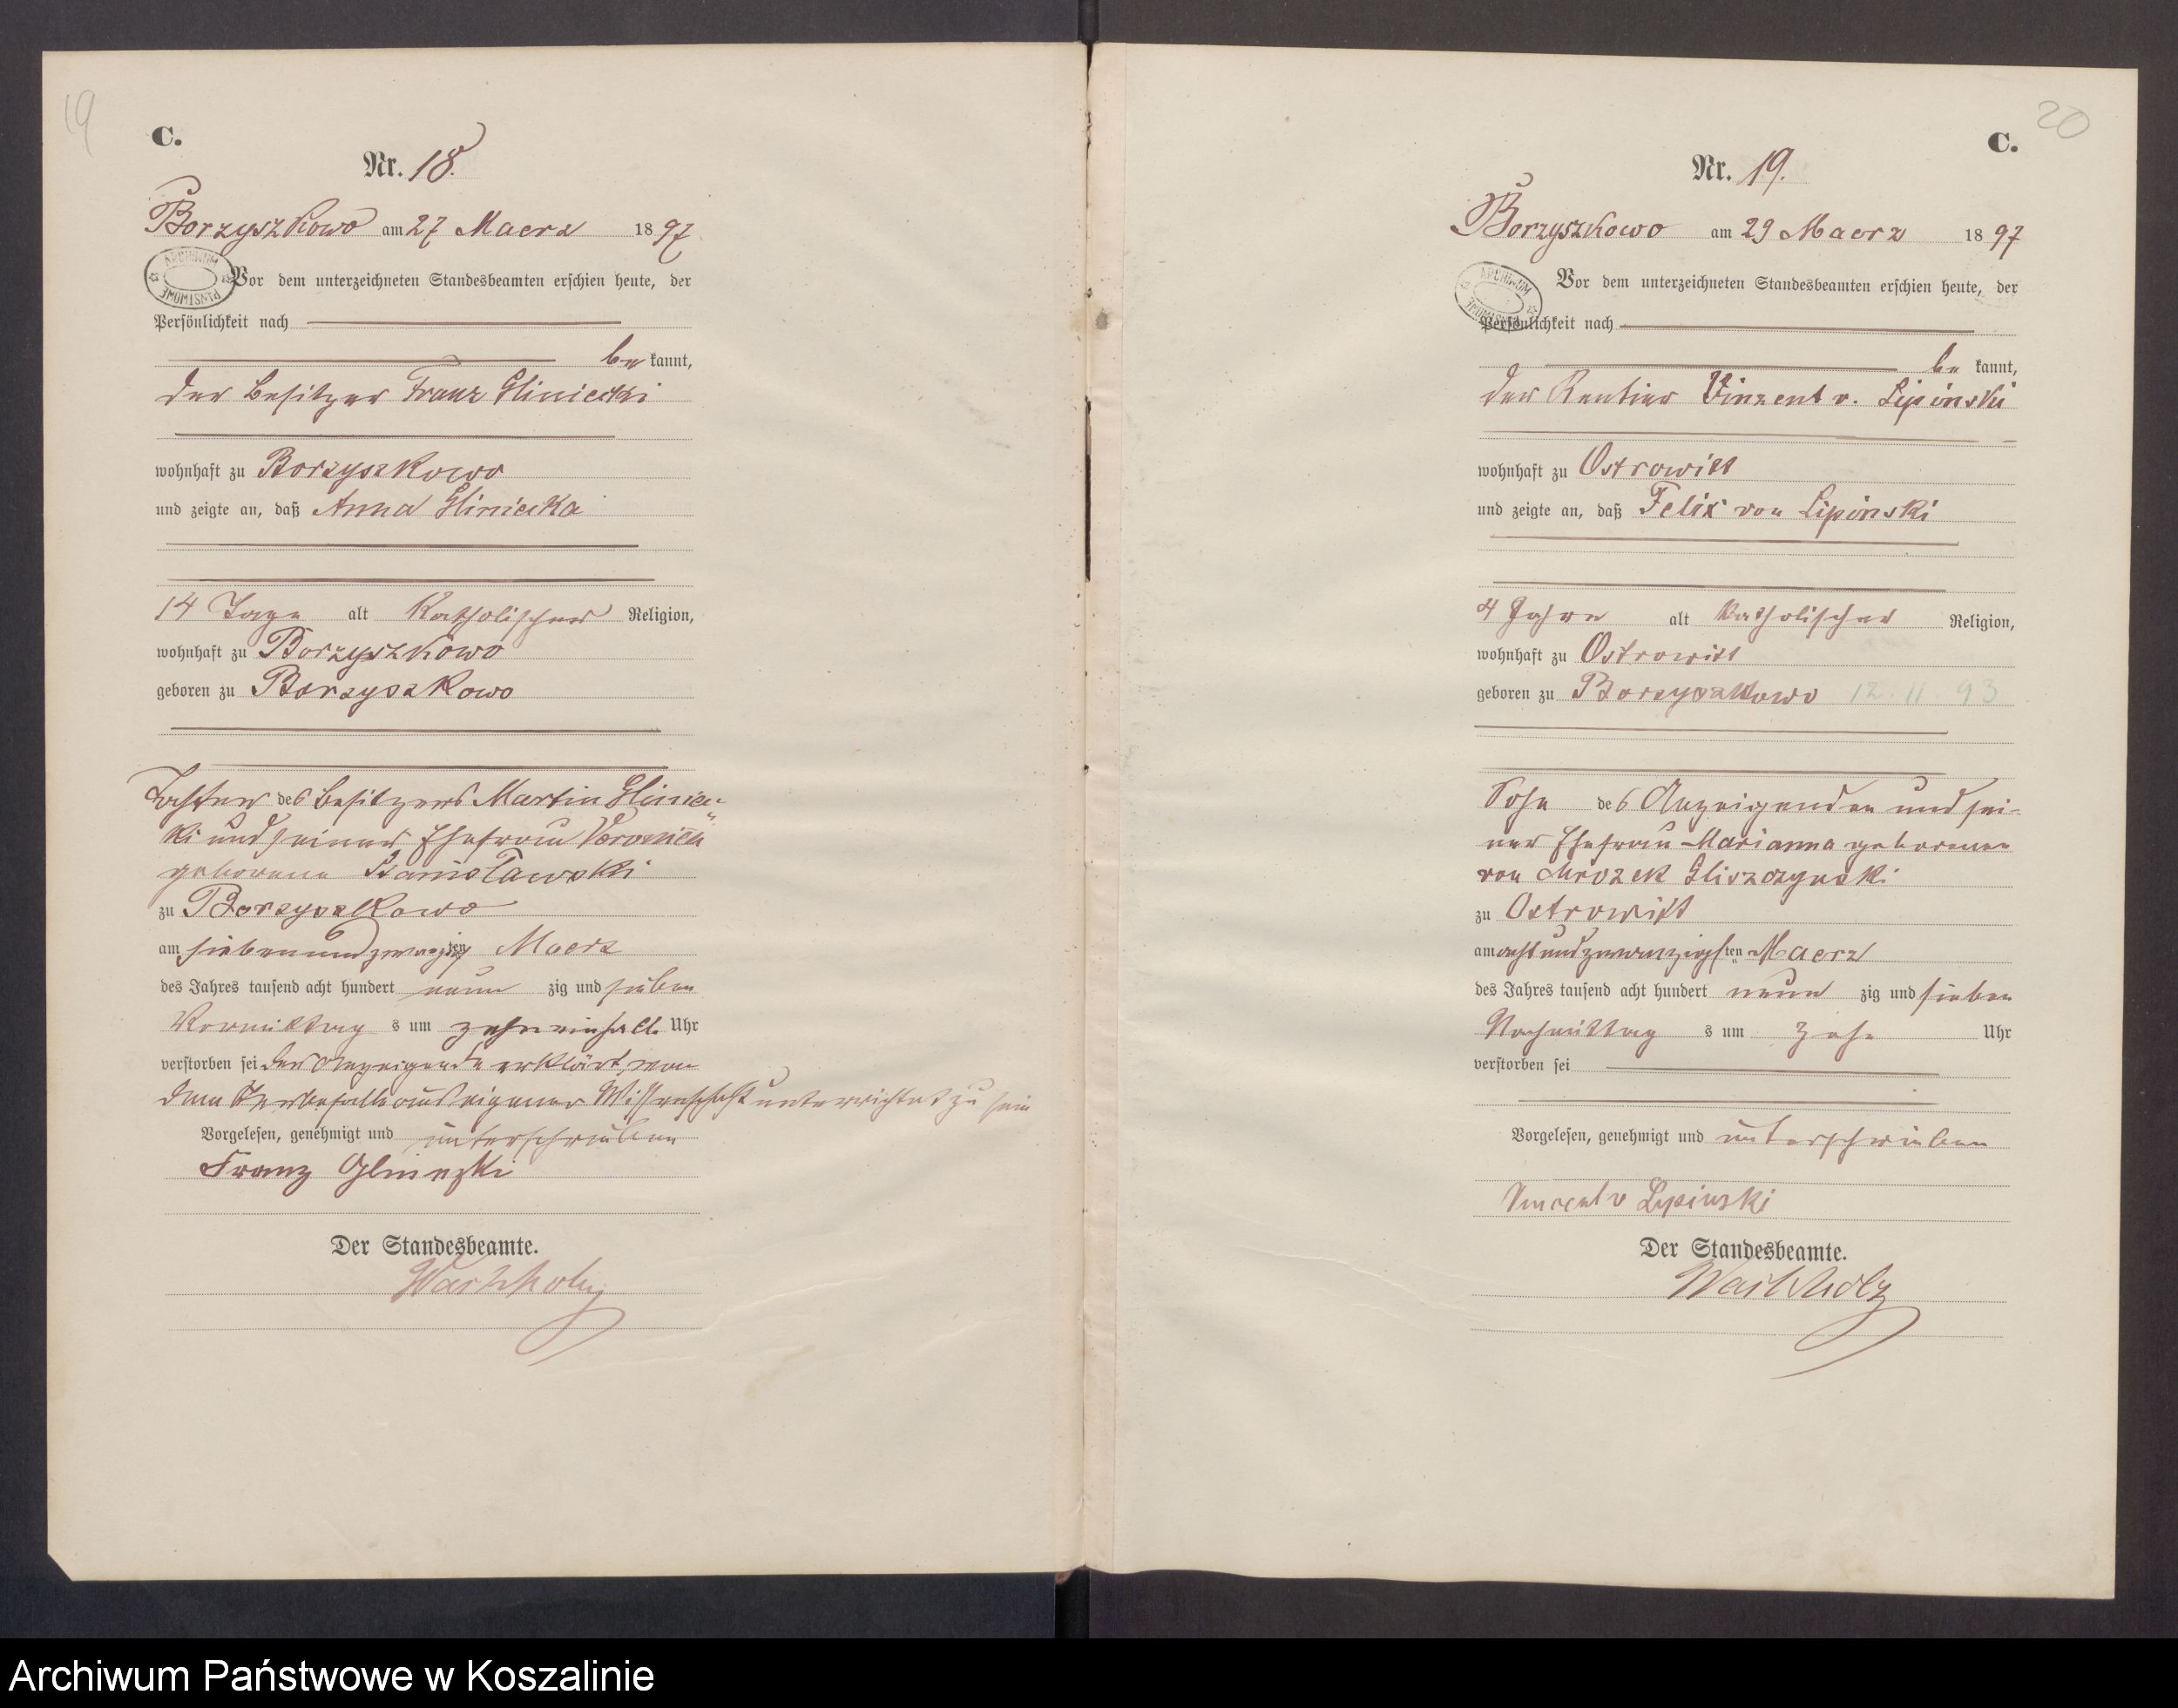 19
C.
Nr. 18.
Borzyszkowo am 27 Maerz 1897
ARCHIWUM PAŃSTWOWE
Vor dem unterzeichneten Standesbeamten erschien heute, der
Persönlichkeit nach
be kannt,
der Besitzer Franz Gliniecki
wohnhaft zu Borzyszkowo
und zeigte an, daß Anna Gliniecka
14 Tage alt katholischer Religion,
wohnhaft zu Borzyszkowo
geboren zu Borzyszkowo
Tochter des Besitzers Martin Glinie-
ki und seiner Ehefrau Veronica
geborene Stanisławski
zu Borzyszkowo
am siebenundzwanzigsten Maerz
des Jahres tausend acht hundert neun zig und sieben
Vormittag s um zehneinhalb Uhr
verstorben sei der Anzeigende erklärt, von
dem Sterbefall aus eigener Wissenschaft unterrichtet zu sein
Vorgelesen, genehmigt und unterschrieben
Franz Glinezki
Der Standesbeamte.
20
C.
Nr. 19.
Borzyszkowo am 29 Maerz 1897
ARCHIWUM PAŃSTWOWE
Vor dem unterzeichneten Standesbeamten erschien heute, der
Persönlichkeit nach
be kannt,
der Rentier Vinzent v. Lipinski
wohnhaft zu Ostrowitt
und zeigte an, daß Felix von Lipinski
4 Jahre alt katholischer Religion,
wohnhaft zu Ostrowitt
geboren zu Borzyszkowo 12. 11. 93
Sohn des Anzeigenden und sei-
ner Ehefrau Marianna geborenen
von Mrozek Gliszczynski
zu Ostrowitt
am achtundzwanzigsten Maerz
des Jahres tausend acht hundert neun zig und sieben
Nachmittag s um zehn Uhr
verstorben sei
Vorgelesen, genehmigt und unterschrieben
Vincent v Lypinski
Der Standesbeamte.
Archiwum Państwowe w Koszalinie